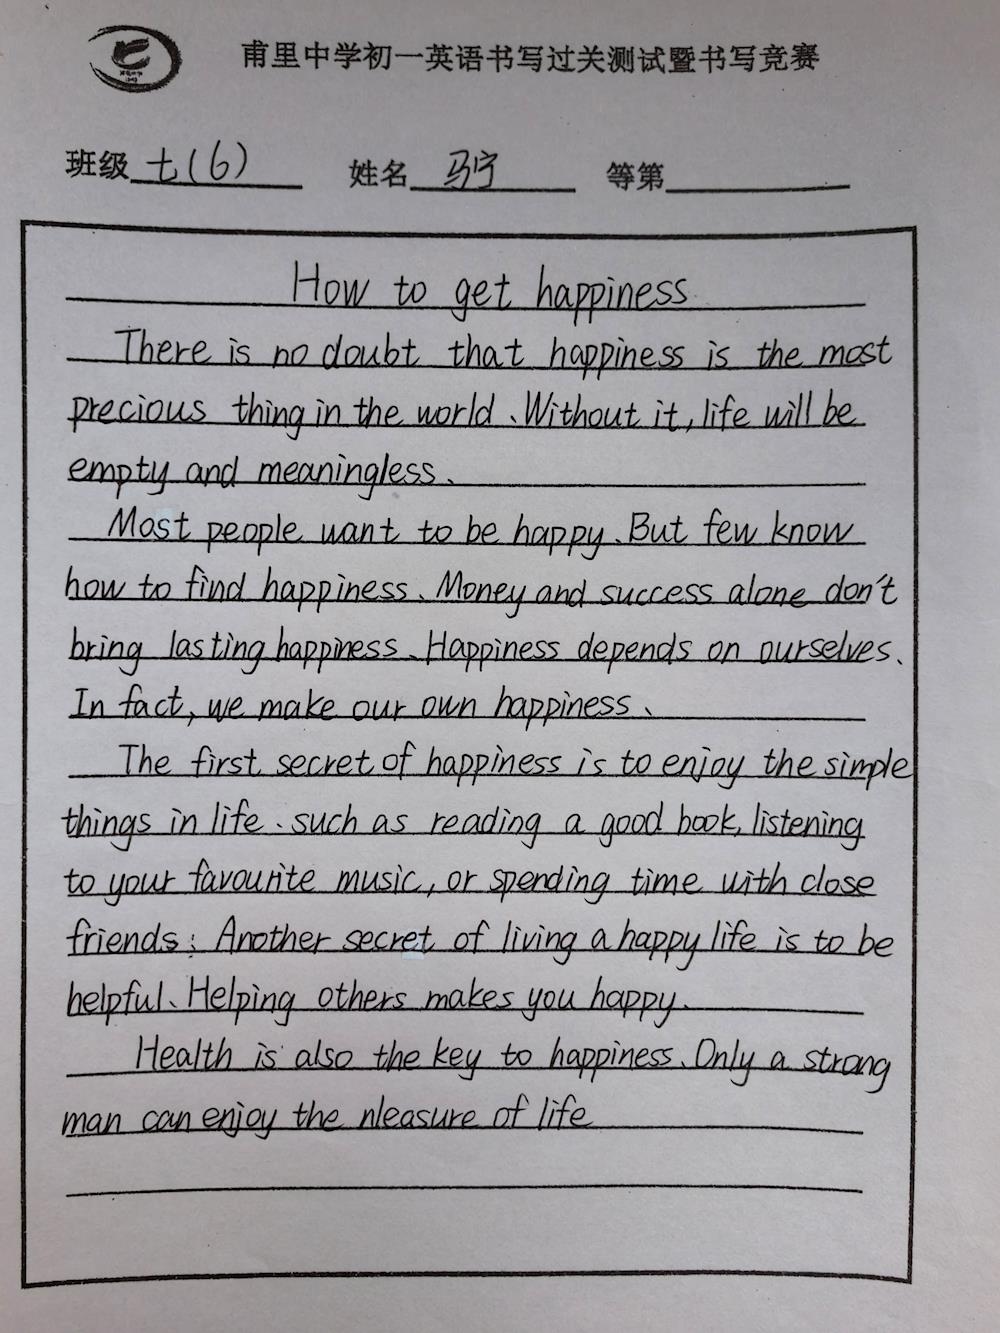 甫里中学初一英语书写过关测试暨书写竞赛
班级 七(6) 姓名 马宁 等第
How to get happiness
There is no doubt that happiness is the most
precious thing in the world. Without it, life will be
empty and meaningless.
Most people want to be happy. But few know
how to find happiness. Money and success alone don't
bring lasting happiness. Happiness depends on ourselves.
In fact, we make our own happiness.
The first secret of happiness is to enjoy the simple
things in life. such as reading a good book, listening
to your favourite music, or spending time with close
friends: Another secret of living a happy life is to be
helpful. Helping others makes you happy.
Health is also the key to happiness. Only a strong
man can enjoy the nleasure of life